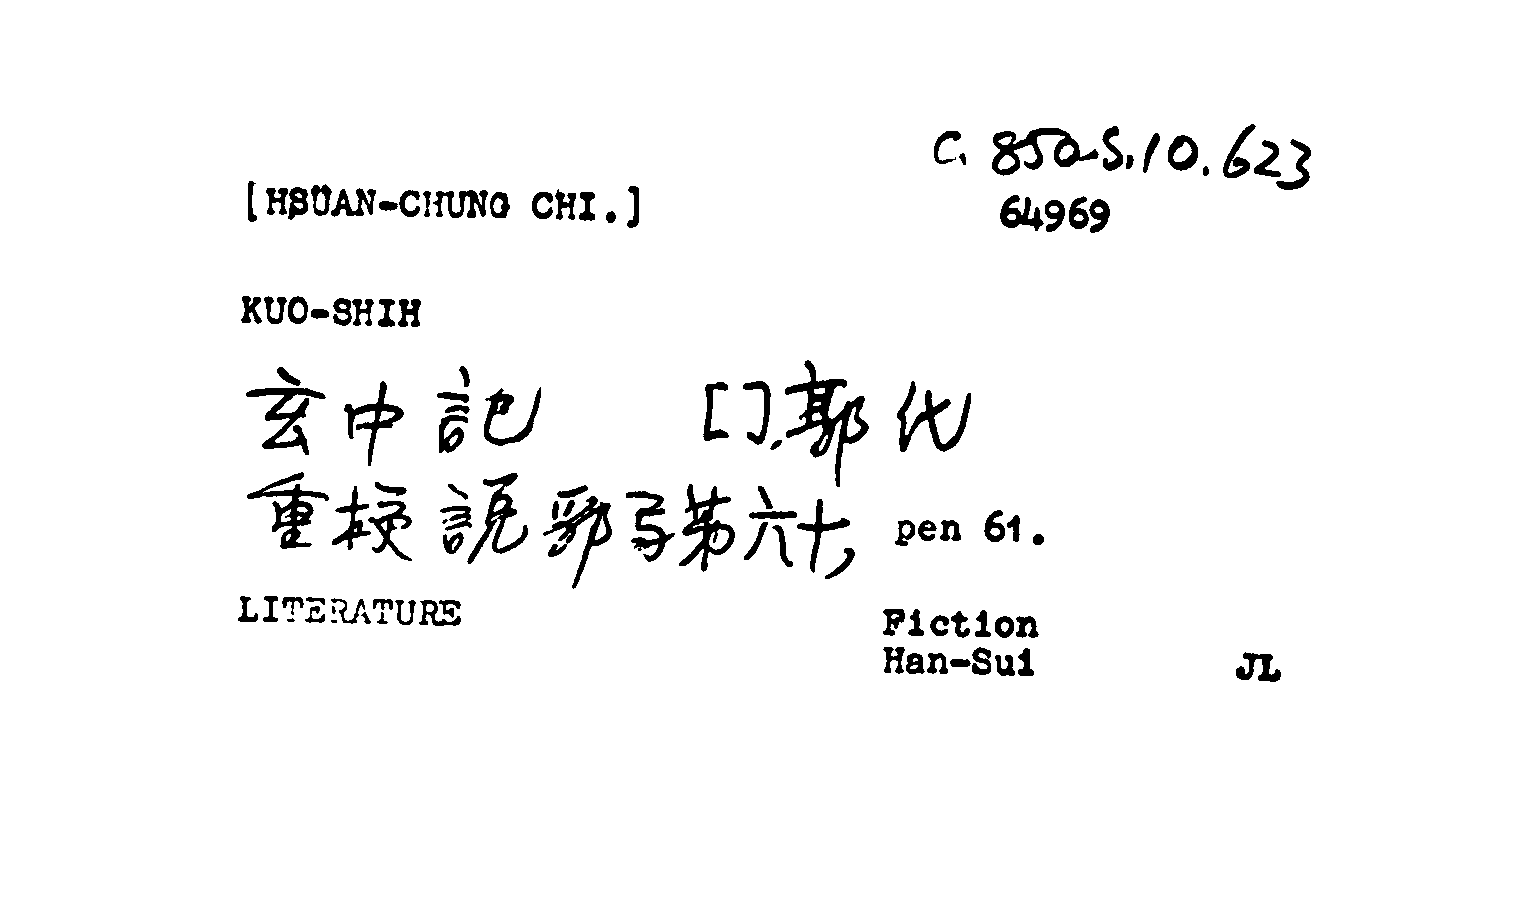 C. 850-S.10.623
[HSÜAN-CHUNG CHI.]
64969
KUO-SHIH
玄中記 [ ] 郭氏
重校說郛弓第六十, pen 61.
LITERATURE
Fiction
Han-Sui JL